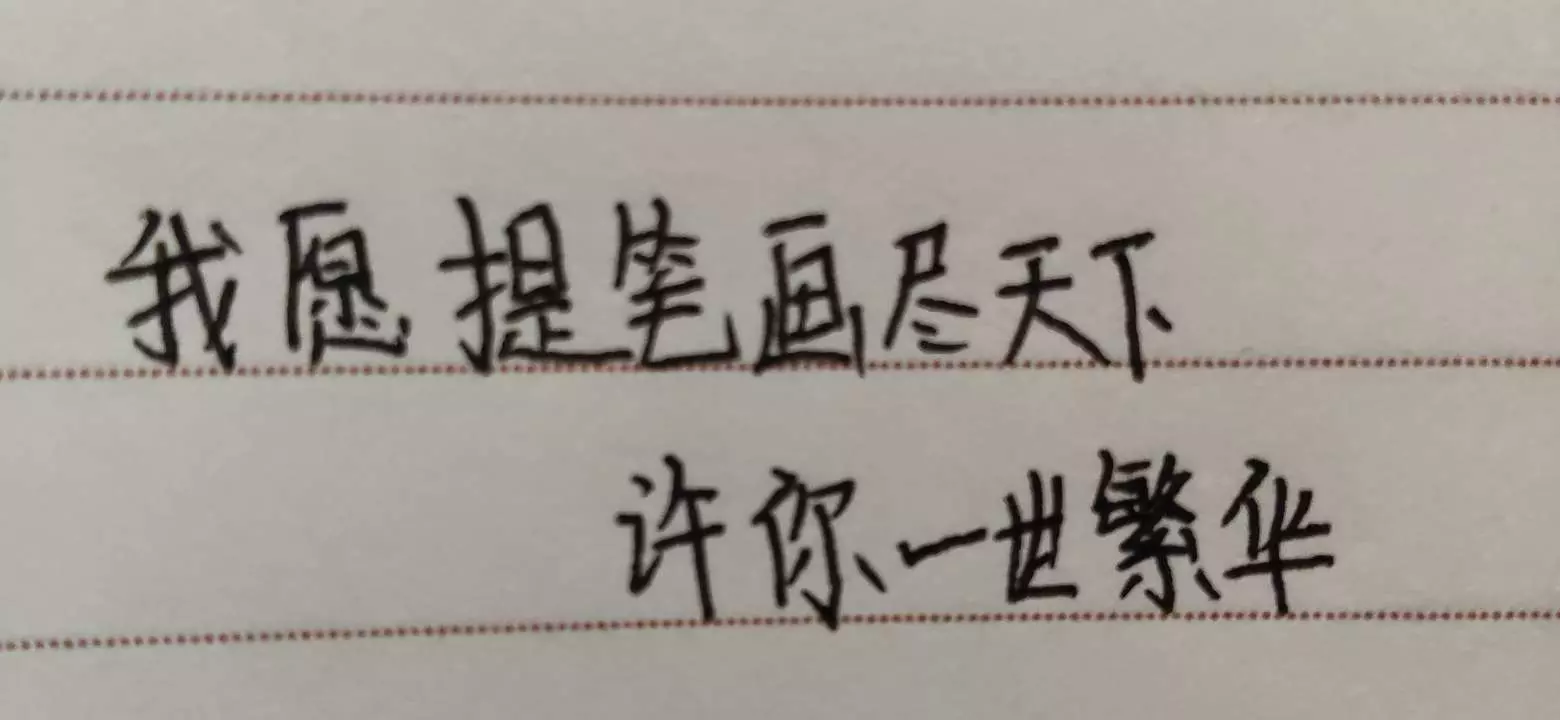 我愿提笔画尽天下
许你一世繁华